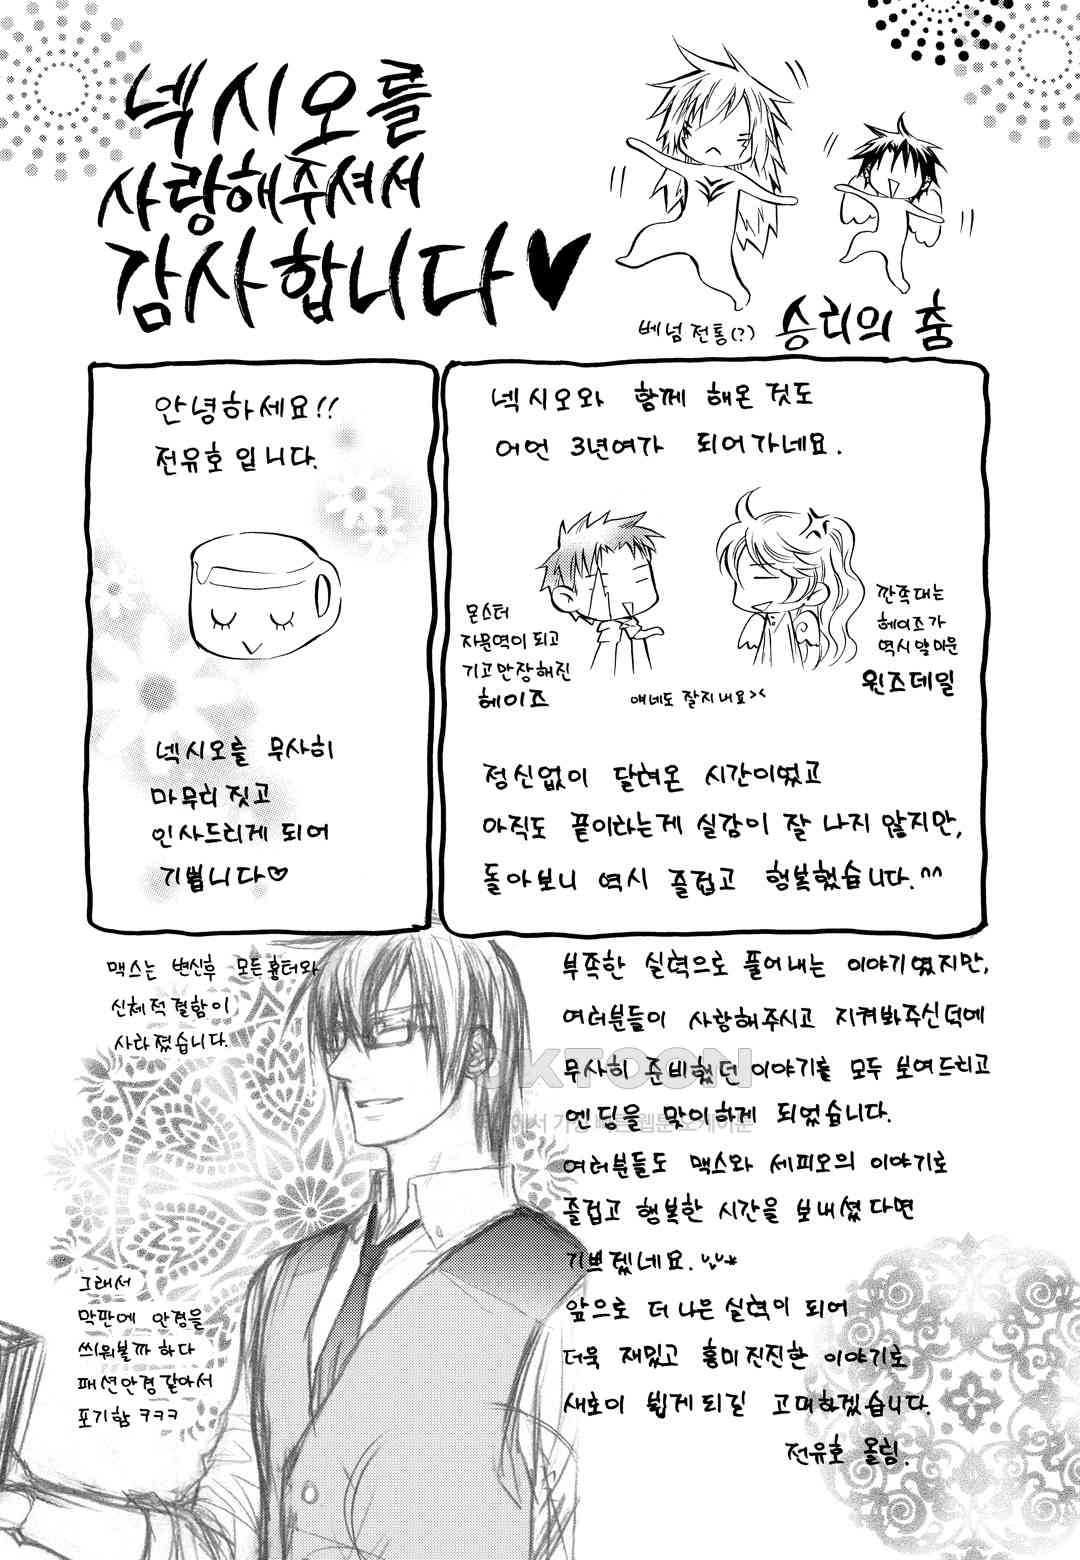 넥시오를
사랑해주셔서
감사합니다♥
베넘 전통(?) 승리의 춤
안녕하세요!!
전유호 입니다.
넥시오를 무사히
마무리 짓고
인사드리게 되어
기쁩니다♡
넥시오와 함께 해온 것도
어언 3년여가 되어가네요.
몬스터
자문역이 되고
기고만장해진
헤이즈
얘네도 잘지내요><
깐족대는
헤이즈가
역시 얄미운
윈즈데일
정신없이 달려온 시간이었고
아직도 끝이라는게 실감이 잘 나지 않지만,
돌아보니 역시 즐겁고 행복했습니다.^^
맥스는 변신후 모든 흉터와
신체적 결함이
사라졌습니다.
그래서
막판에 안경을
씌워볼까 하다
패션안경 같아서
포기함 ㅋㅋㅋ
부족한 실력으로 풀어내는 이야기였지만,
여러분들이 사랑해주시고 지켜봐주신 덕에
무사히 준비했던 이야기를 모두 보여드리고
엔딩을 맞이하게 되었습니다.
여러분들도 맥스와 세피오의 이야기로
즐겁고 행복한 시간을 보내셨다면
기쁘겠네요.
앞으로 더 나은 실력이 되어
더욱 재밌고 흥미진진한 이야기로
새로이 뵙게되길 고대하겠습니다.
전유호 올림.